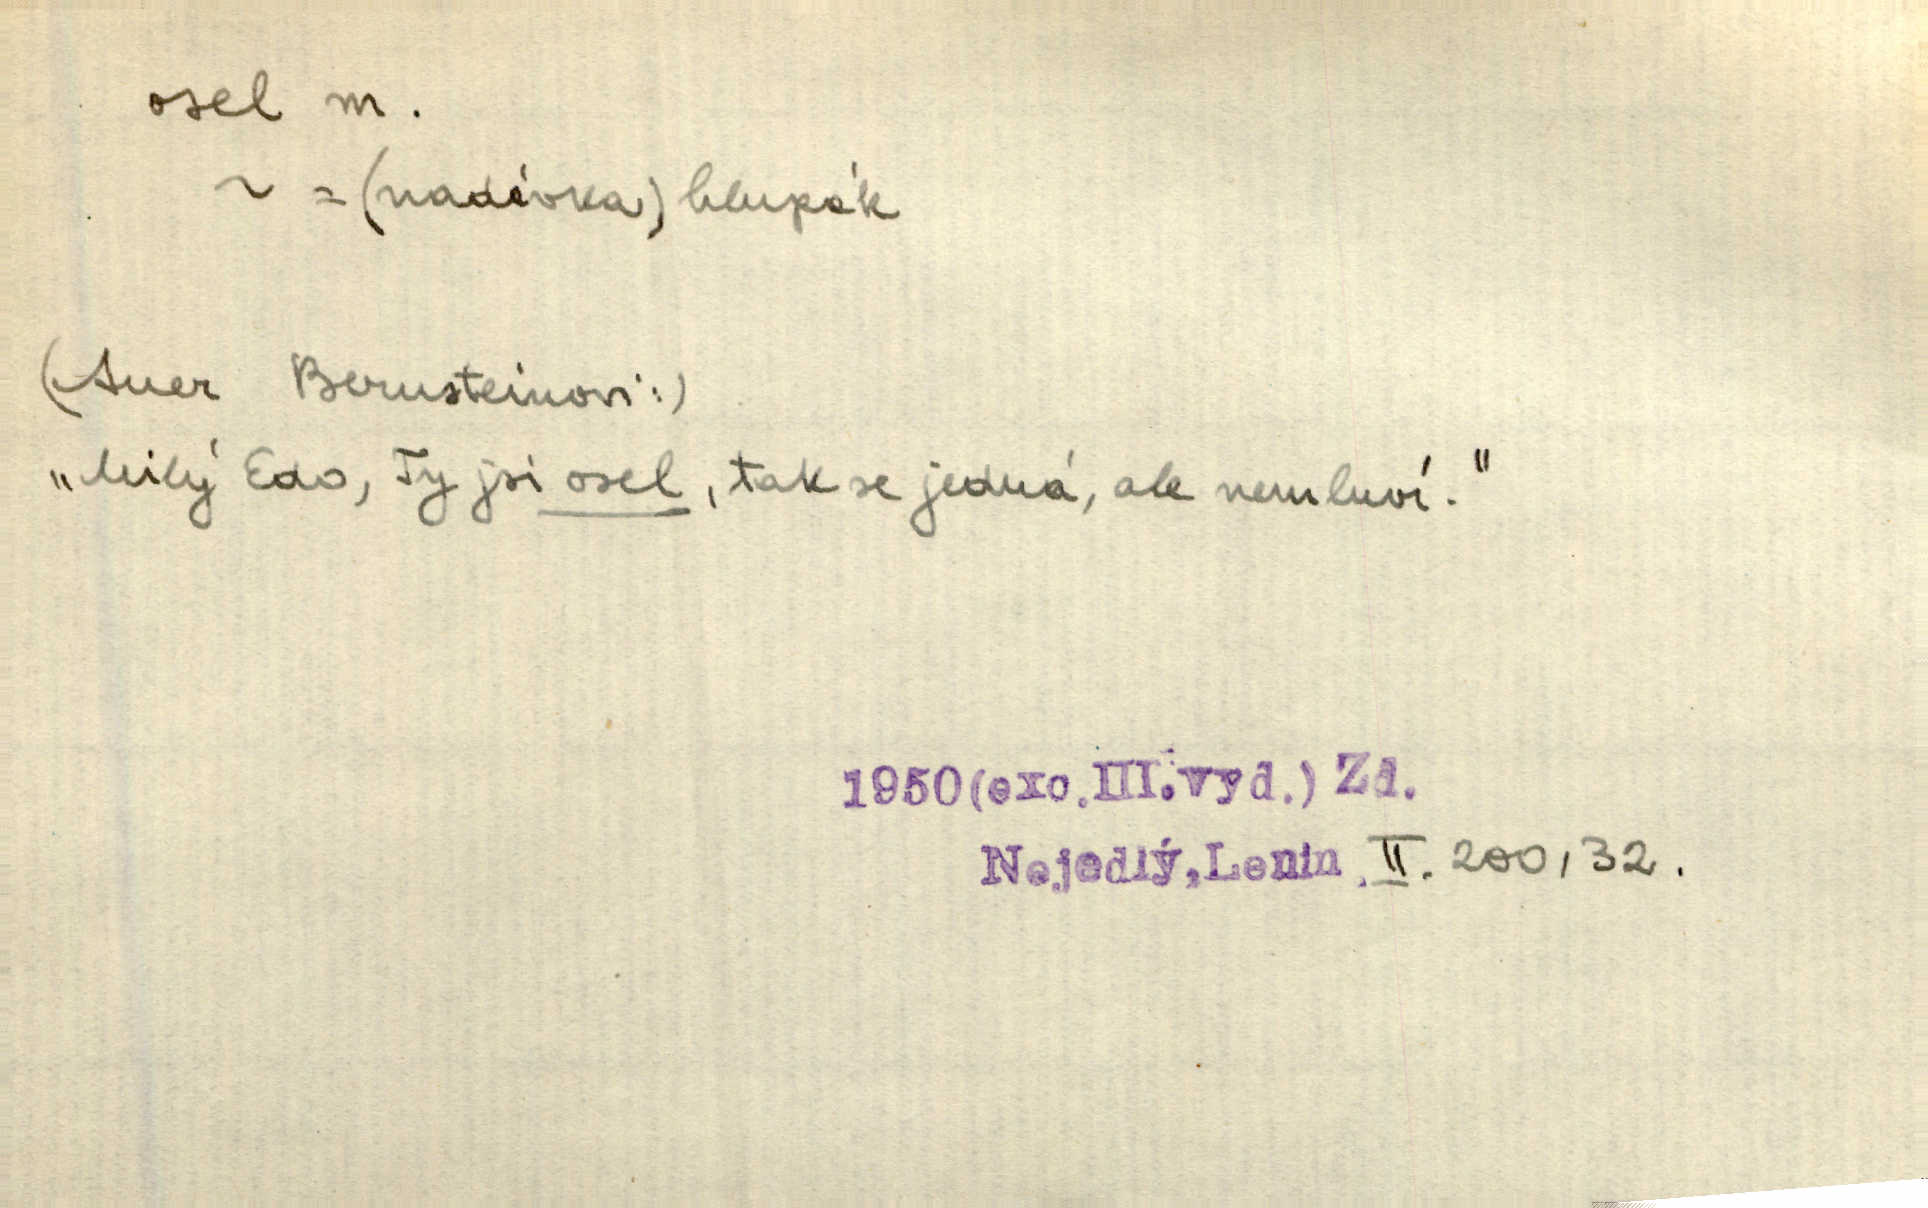 osel m.
~ = (nadávka) hlupák
(Auer Bernsteinovi:)
„Milý Edo, Ty jsi osel, tak se jedná, ale nemluví."
1950(exc.III.vyd.) Zd.
Nejedlý,Lenin II. 200,32.